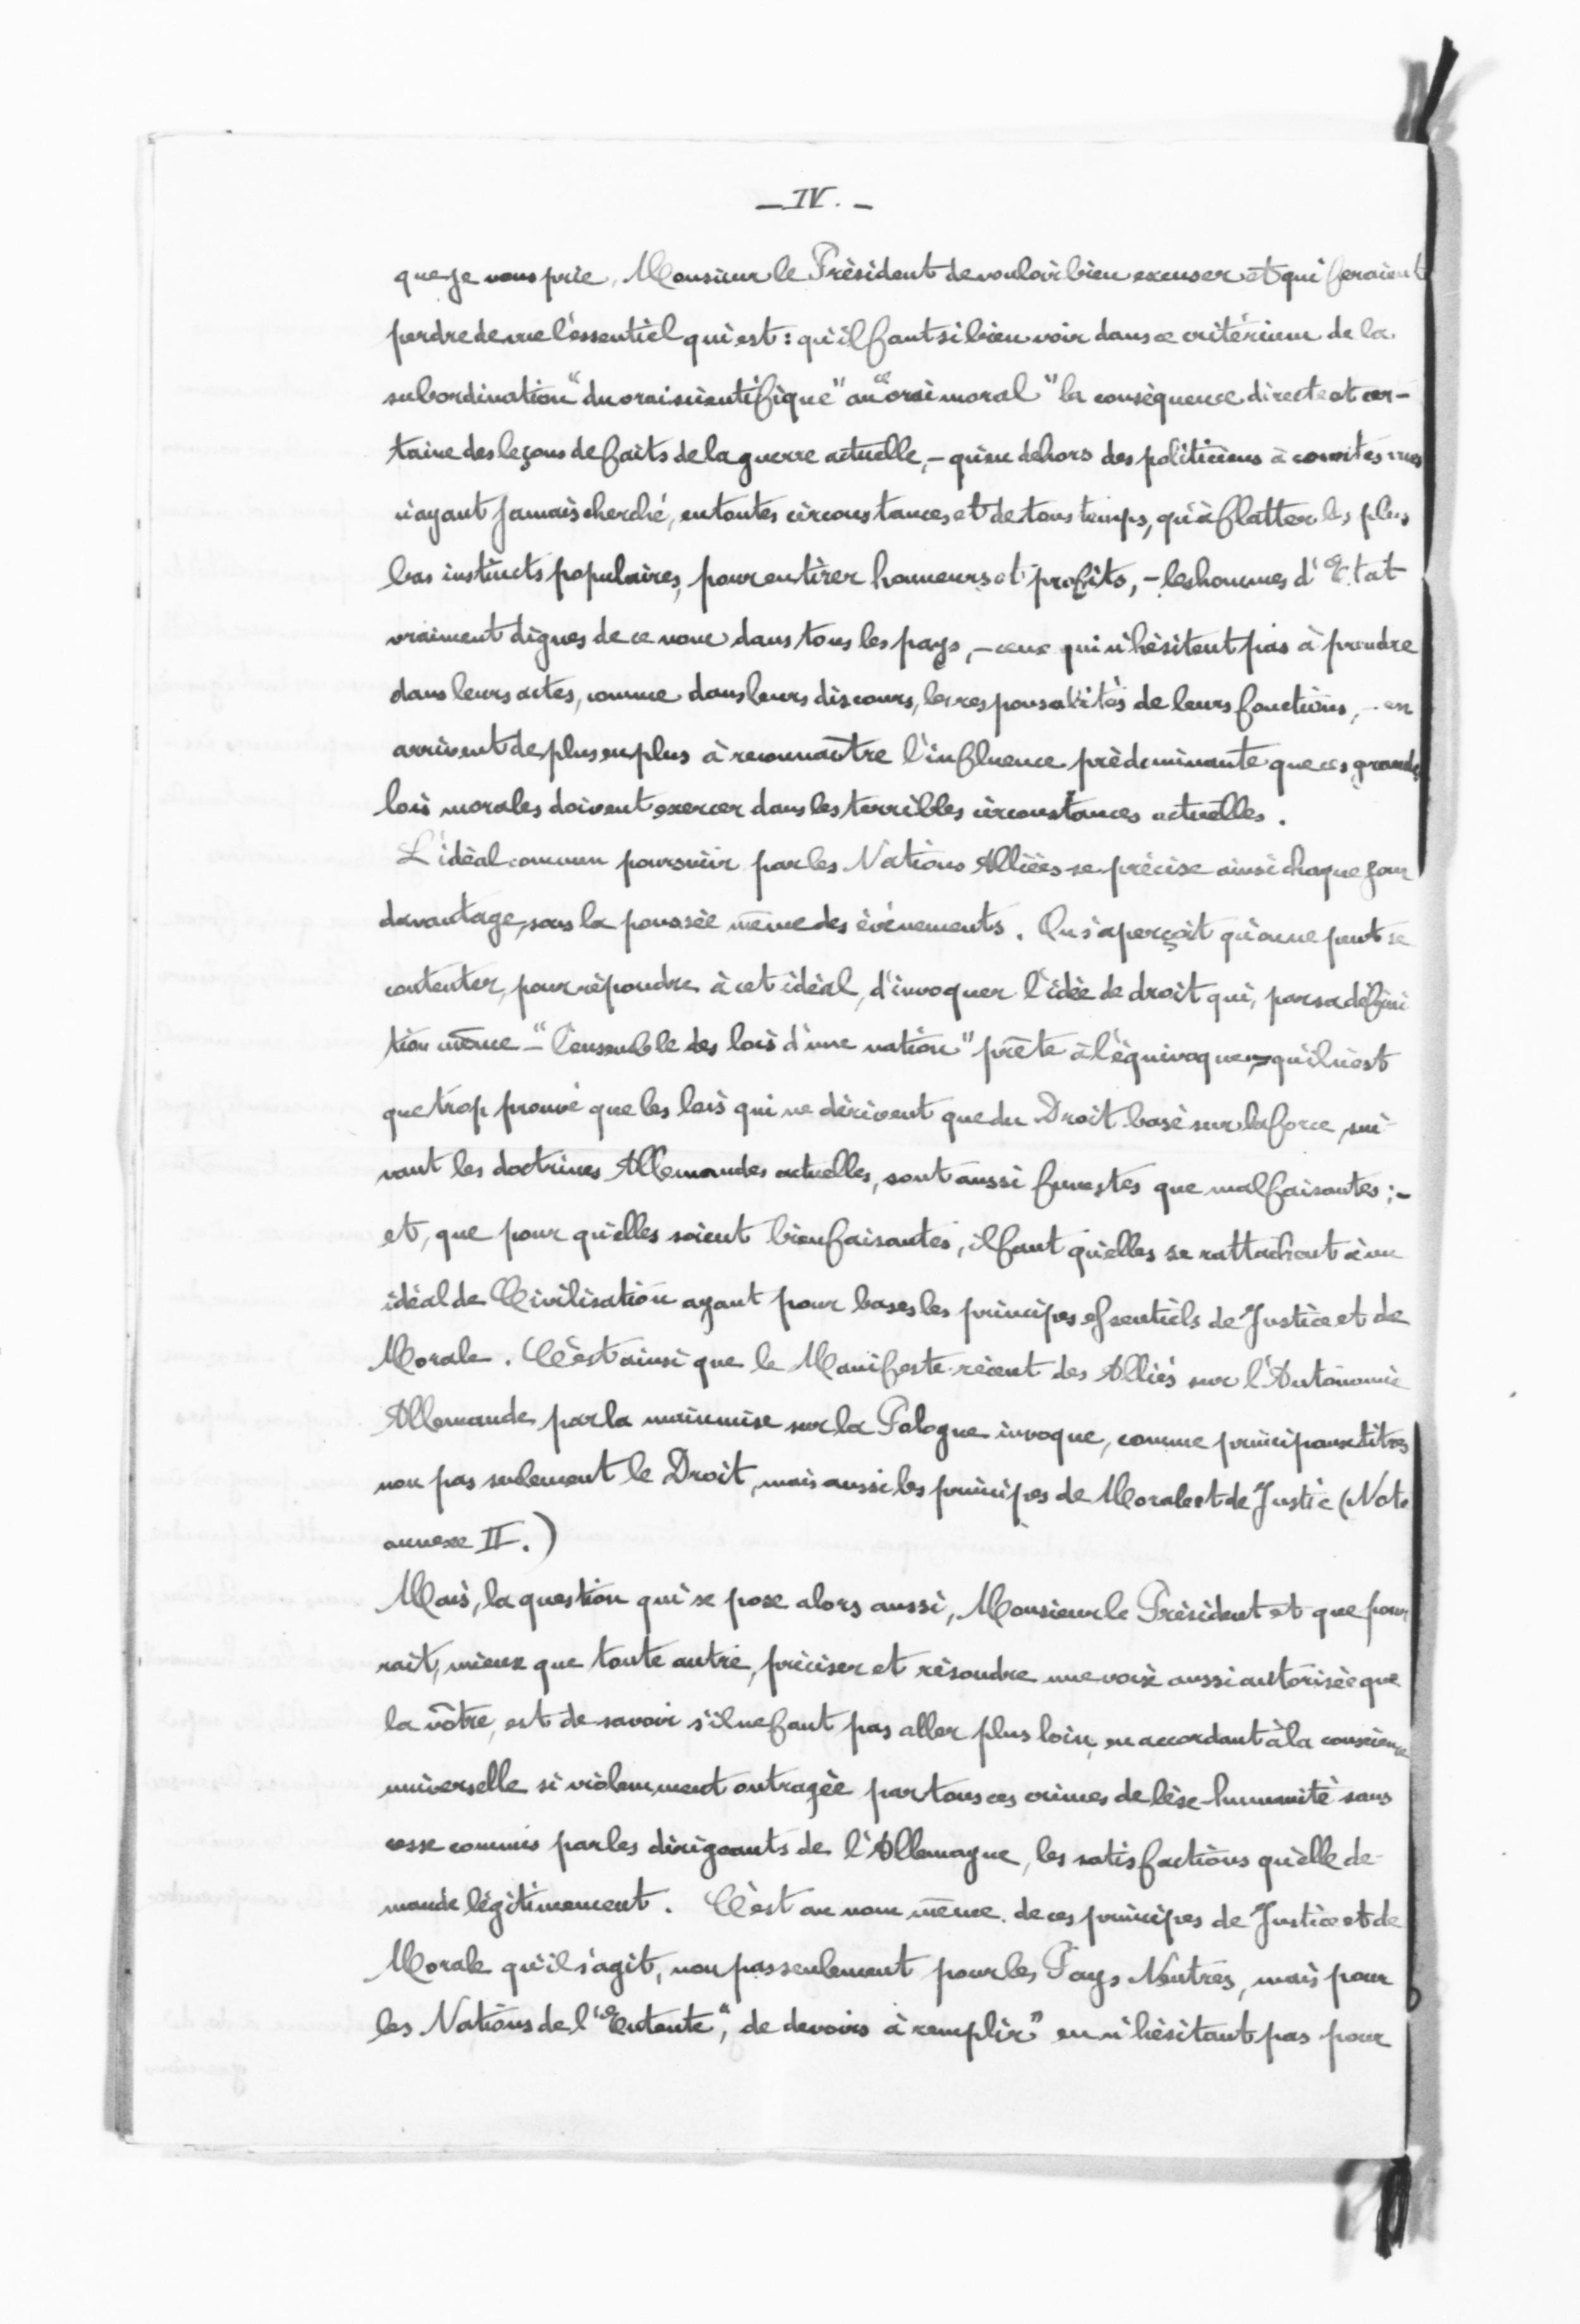 _ IV. _
que je vous prie, Monsieur le Président de vouloir bien excuser et qui feraient
perdre de vue l'essentiel qui est : qu'il faut si bien voir dans ce critérium de la
subordination "du vrai scientifique" au "vrai moral" la conséquence directe et cer-
taine des leçons de faits de la guerre actuelle, - qu'en dehors des politiciens à courtes vues
n'ayant jamais cherché, en toutes circonstances et de tous temps, qu'à flatter les plus
bas instincts populaires, pour en tirer honneurs et profits, - les hommes d'Etat
vraiment dignes de ce nom dans tous les pays, - ceux qui n'hésitent pas à prendre
dans leurs actes, comme dans leurs discours, les responsabilités de leurs fonctions, - en
arrivent de plus en plus à reconnaître l'influence prédominante que ces grandes
lois morales doivent exercer dans les terribles circonstances actuelles.
L'idéal commun poursuivi par les Nations Alliées se précise ainsi chaque jour
davantage, sous la poussée même des événements. On s'aperçoit qu'on ne peut se
contenter, pour répondre à cet idéal, d'invoquer l'idée de droit qui, par sa défini
tion même - "l'ensemble des lois d'une nation" prête à l'équivoque, - qu'il n'est
que trop prouvé que les lois qui ne dérivent que du Droit basé sur la force, sui-
vant les doctrines Allemandes actuelles, sont aussi funestes que malfaisantes ; -
et, que pour qu'elles soient bienfaisantes, il faut qu'elles se rattachent à un
idéal de Civilisation ayant pour bases les principes essentiels de Justice et de
Morale. C'est ainsi que le Manifeste récent des Alliés sur l'Autonomie
Allemande par la mainmise sur la Pologne invoque, comme principaux titres
non pas seulement le Droit, mais aussi les principes de Morale et de Justice (Note
annexe II.)
Mais, la question qui se pose alors aussi, Monsieur le Président et que pour
rait, mieux que toute autre, préciser et résoudre une voix aussi autorisée que
la vôtre, est de savoir s'il ne faut pas aller plus loin, en accordant à la conscience
universelle si violemment outragée par tous ces crimes de lèse-humanité sans
cesse commis par les dirigeants de l'Allemagne, les satisfactions qu'elle de-
mande légitimement. C'est au nom même de ces principes de Justice et de
Morale qu'il s'agit, non pas seulement pour les Pays Neutres, mais pour
les Nations de l'"Entente", de devoirs à remplir" en n'hésitant pas pour